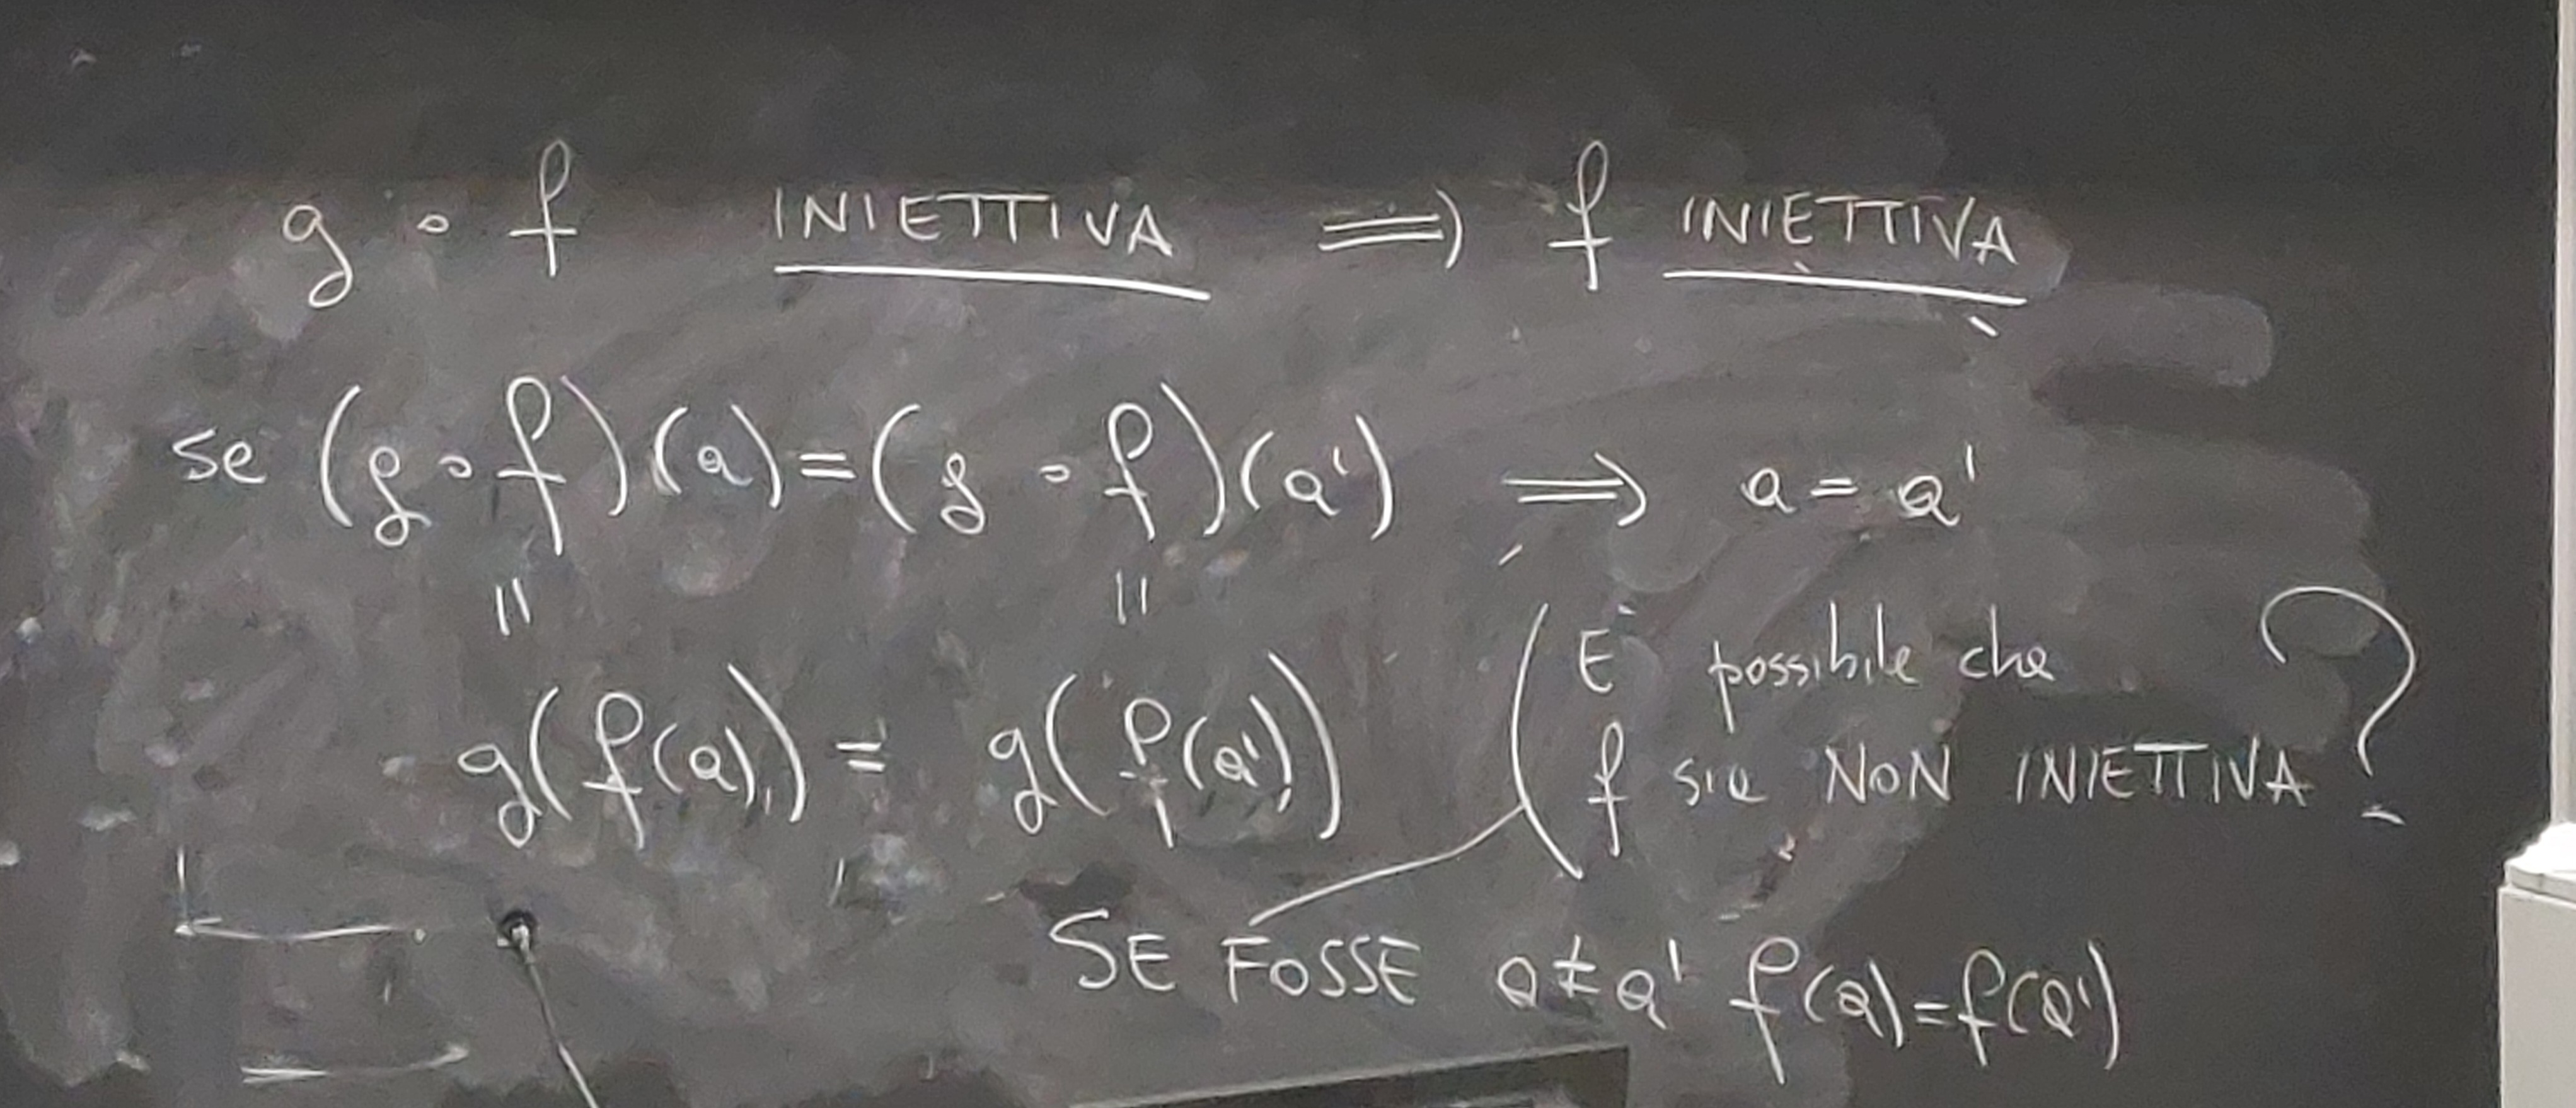 g ∘ f INIETTIVA ⟹ f INIETTIVA
se (g ∘ f)(a) = (g ∘ f)(a') ⟹ a = a'
|| ||
g(f(a)) = g(f(a'))
( E' possibile che
f sia NON INIETTIVA ?
SE FOSSE a ≠ a' f(a) = f(a')